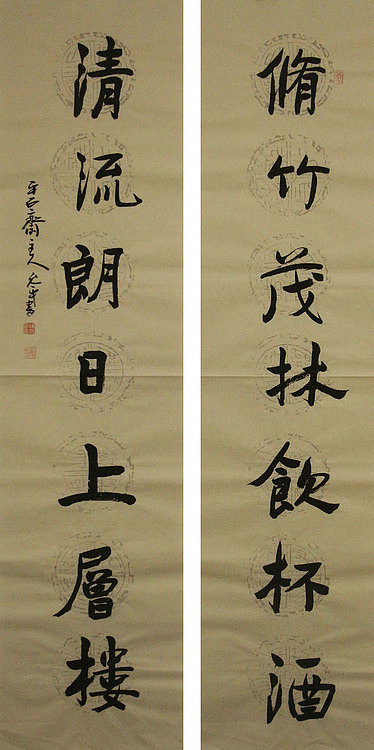 脩竹茂林飲杯酒
清流朗日上層楼
齋主人